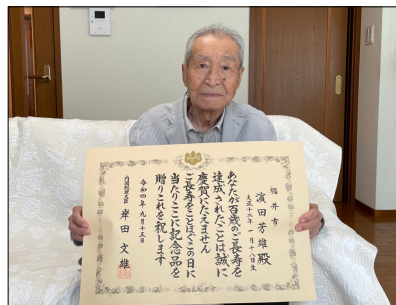 福井市
濱田芳雄殿
大正十一年一月十八日生
あなたが百歳のご長寿を
達成されたことは誠に
慶賀にたえません
ご長寿をことほぐこの日に
当たりここに記念品を
贈りこれを祝します
令和四年九月十五日
内閣総理大臣 岸田文雄